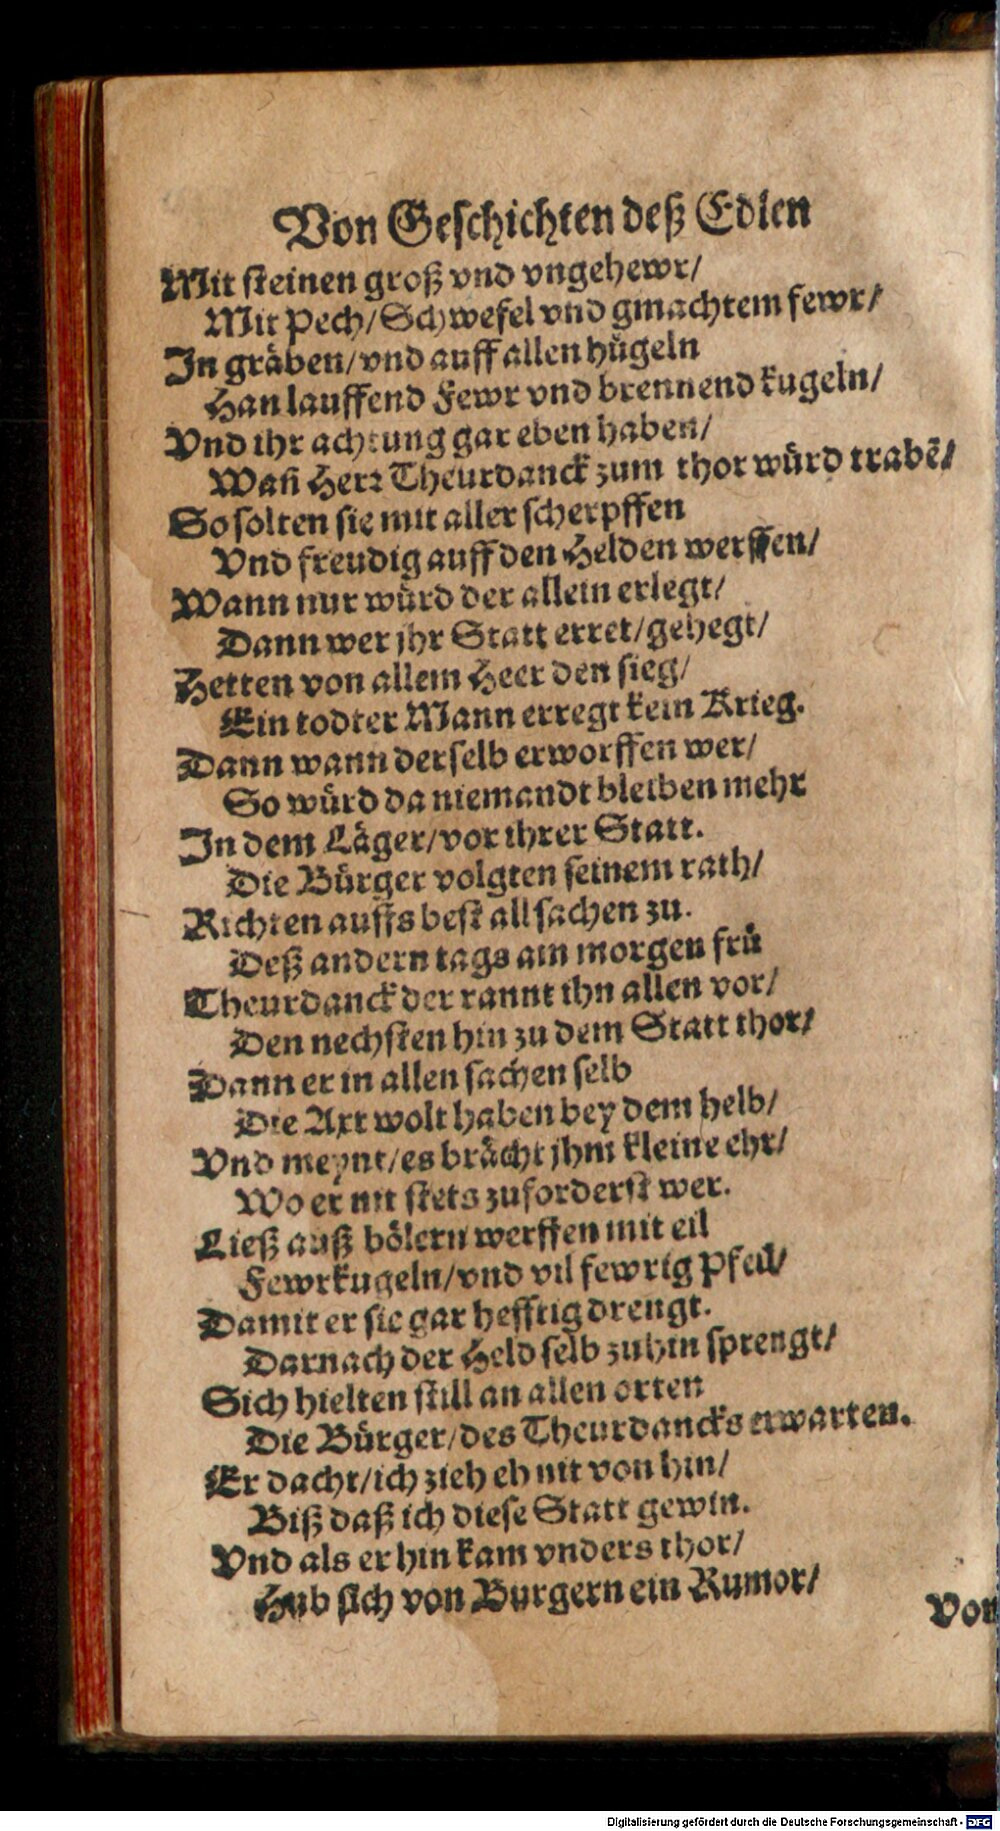 Von Geschichten deß Edlen
Mit steinen groß vnd vngehewr/
Mit Pech/Schwefel vnd gmachtem fewr/
In gräben/vnd auff allen hügeln
Han lauffend Fewr vnd brennend kugeln/
Vnd ihr achtung gar eben haben/
Wañ Herr Theurdanck zum thor würd trabẽ/
So solten sie mit aller scherpffen
Vnd freudig auff den Helden werffen/
Wann nur würd der allein erlegt/
Dann wer jhr Statt erret/gehegt/
Hetten von allem Heer den sieg/
Ein todter Mann erregt kein Krieg.
Dann wann derselb erworffen wer/
So würd da niemandt bleiben mehr
In dem Läger/vor ihrer Statt.
Die Bürger volgten seinem rath/
Richten auffs best all sachen zu.
Deß andern tags am morgen frů
Theurdanck der rannt ihn allen vor/
Den nechsten hin zu dem Statt thor/
Dann er in allen sachen selb
Die Axt wolt haben bey dem helb/
Vnd meynt/es brächt jhm kleine ehr/
Wo er nit stets zuforderst wer.
Ließ auß bölern werffen mit eil
Fewrkugeln/vnd vil fewrig Pfeil/
Damit er sie gar hefftig drengt.
Darnach der Held selb zuhin sprengt/
Sich hielten still an allen orten
Die Bürger/des Theurdancks erwarten.
Er dacht/ich zieh eh nit von hin/
Biß daß ich diese Statt gewin.
Vnd als er hin kam vnders thor/
Hub sich von Burgern ein Rumor/
Von
Digitalisierung gefördert durch die Deutsche Forschungsgemeinschaft - DFG